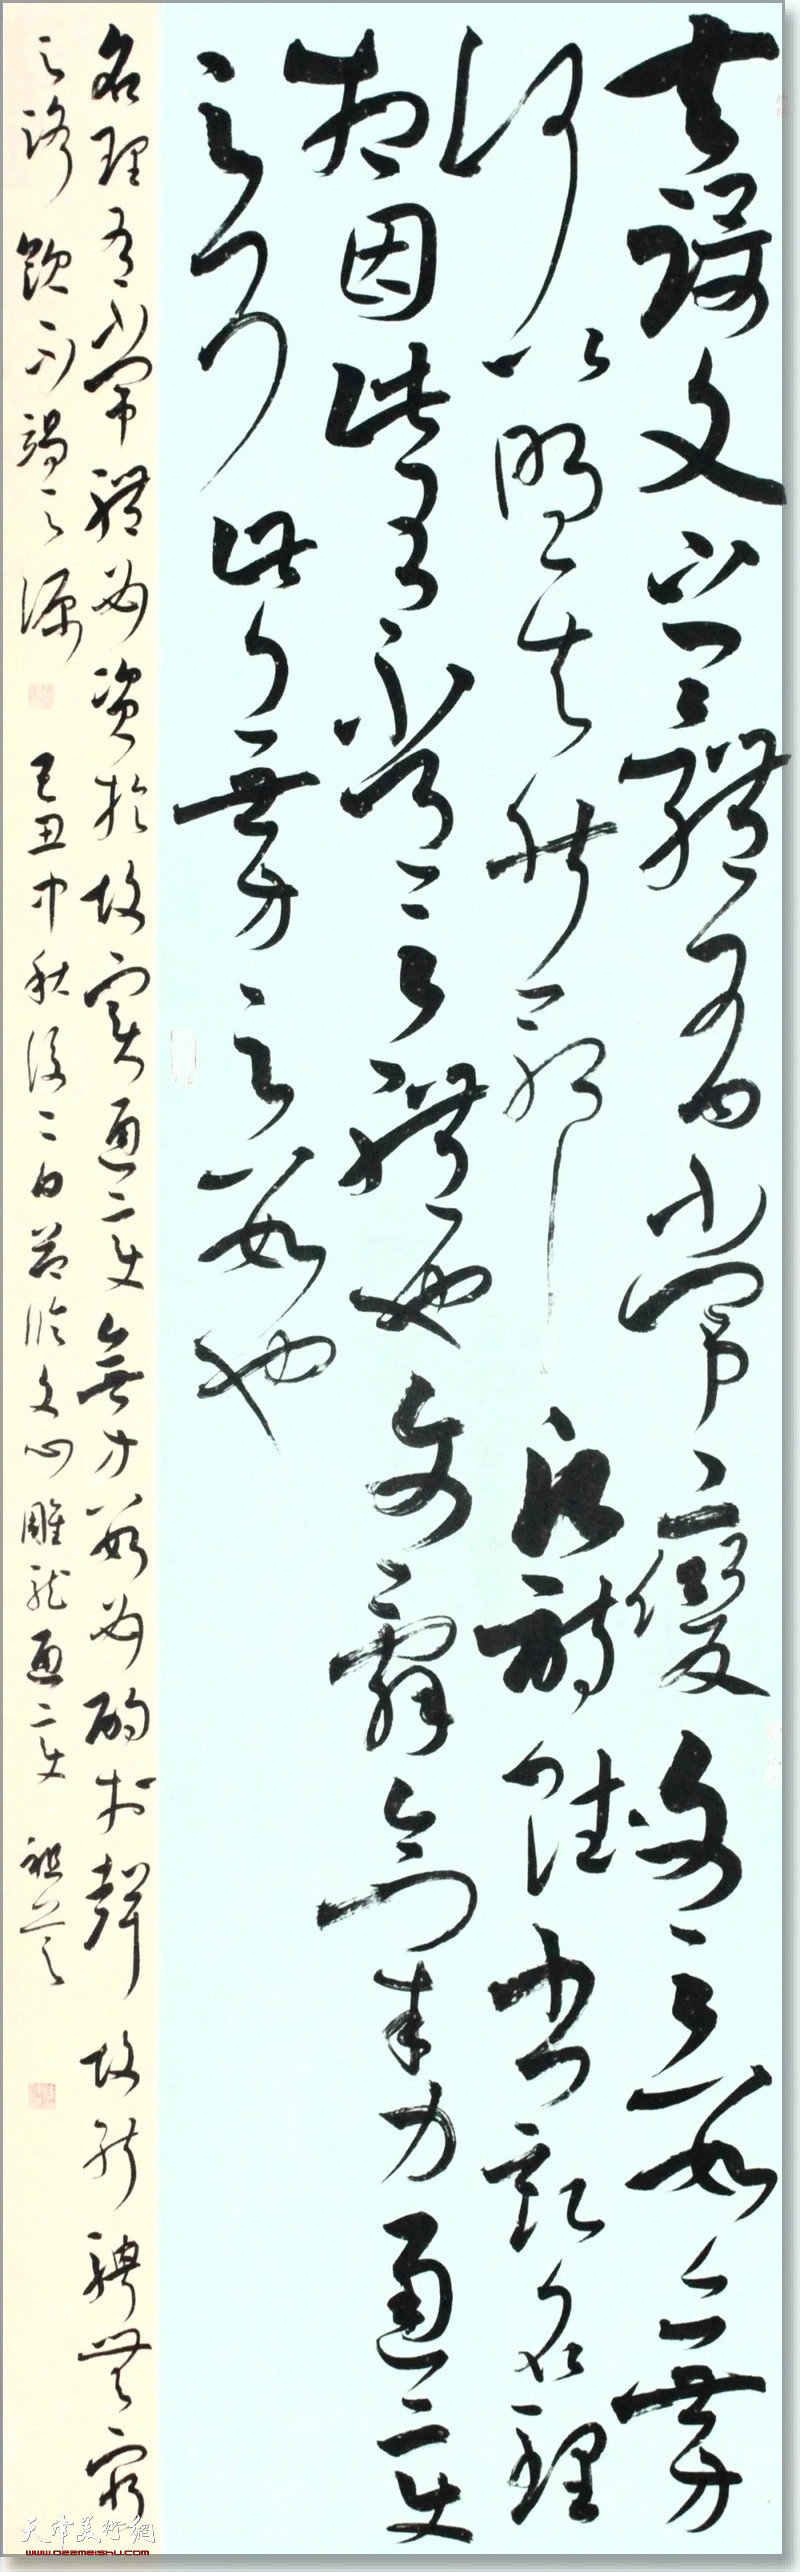 夫設文之體有常變文之數無方
何以明其然耶凡詩賦書記名理
相因此有常之體也文辭氣力通變
則久此乃無方之數也
名理有常體必資於故實通變無方數必酌於新聲故能騁無窮
之路飲不竭之源 己丑中秋後二日節臨文心雕龍通變
天津美術網
www.022meishu.com